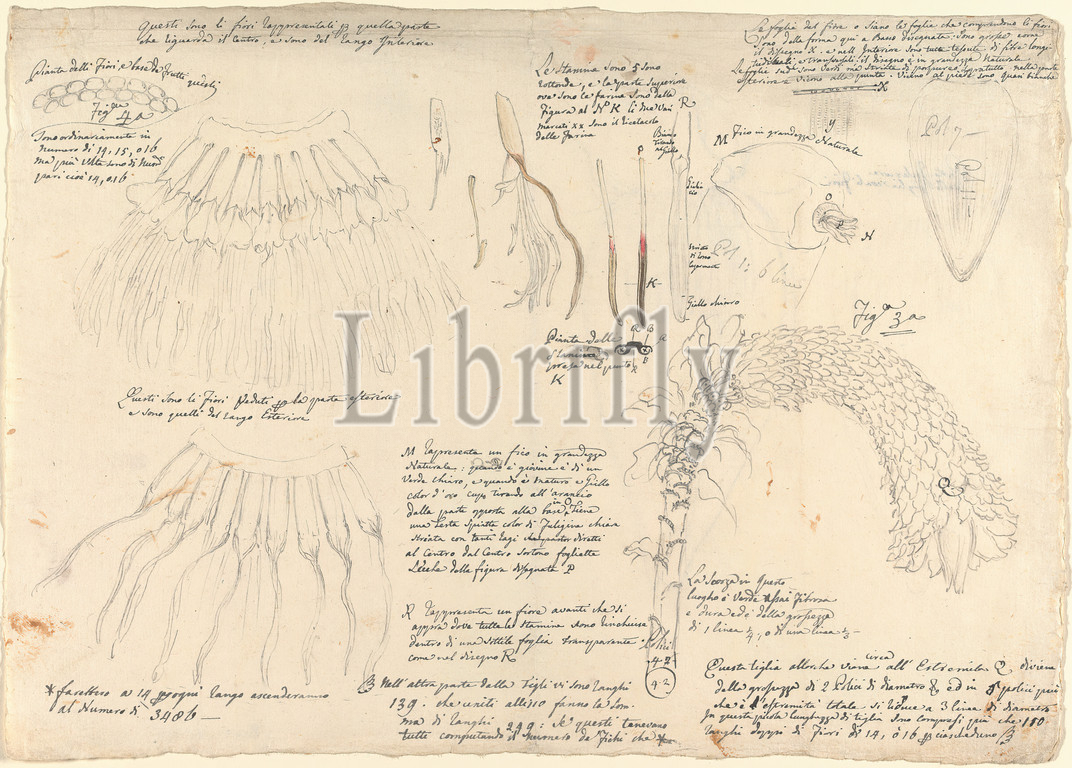 Questi sono li fiori rappresentati p quella parte
che riguarda il Centro, e sono del rango Interiore
Pianta delli Fiori, e base de Frutti
questi
Figra
4a
sono ordinariamente in
numero di 14, 15, o 16
ma più volte sono di Num
pari cioè 14, o 16
Le Stamina sono 5 sono
rottonde, e la parte superiore
ove sono le farina sono della
Figura al No K li
marcati xx sono il ricetacolo
della Farina
Le foglie del fiore o siano le foglie che comprendono li fiori
sono della forma qui a Basso disegnata: sono grosse come
il disegno X. e nell Interiore sono tutte tessute di fibre longi
tudinali e trasversali il disegno è in grandezza Naturale
Le foglie
X
y
M Fico in grandezza Naturale
R
P
Bianco
tirando
al Giallo
Giallo chiaro
K
O
P
N
Pl 7
Pl 1: 6 linee
Pianta delle
Stamina
presa nel punto
K
a B a
B
R
Figa 3a
Questi sono li Fiori Veduti p la parte esteriore
e sono quelli del rango Esteriore
M rapresenta un fico in grandezza
Naturale: quando è giovine è di un
Verde chiaro, e quando è maturo è Giallo
color d'oro cupo tirando all'arancio
dalla parte opposta alla base in O tiene
una testa schiatta color di fuligine chiara
striata con tanti ragi diretti
al Centro dal Centro sortono fogliette
secche della figura disegnata P
R rappresenta un fiore avanti che si
appra dove tutte le stamine sono rinchiuse
dentro di una sottile foglia transparente
come nel disegno R
La Scorza in questo
luogho è Verde assai Fibrosa
e dura ed è della grossezza
di 1 linea 1/4, o di una linea 1/2
Polici
4-2
4-2
* farebbero a 14 p ogni rango ascenderanno
al Numero di 3486 —
B Nell'altra parte della Tigli vi sono ranghi
139. che uniti alli 110 fanno la som-
ma di ranghi 249: Se questi tenevano
tutte computando il numero de Fichi che *
circa
Questa tiglia allorche viene all'Estremità Q diviene
della grossezza di 2 Polici di diametro ed in polici più
che è l'estremità totale si riduce a 3 linee di diametro
In questa lunghezza di tiglia sono compresi più che 110
ranghi doppi di Fiori di 14, o 16 p ciascheduno B
Q
Librifly